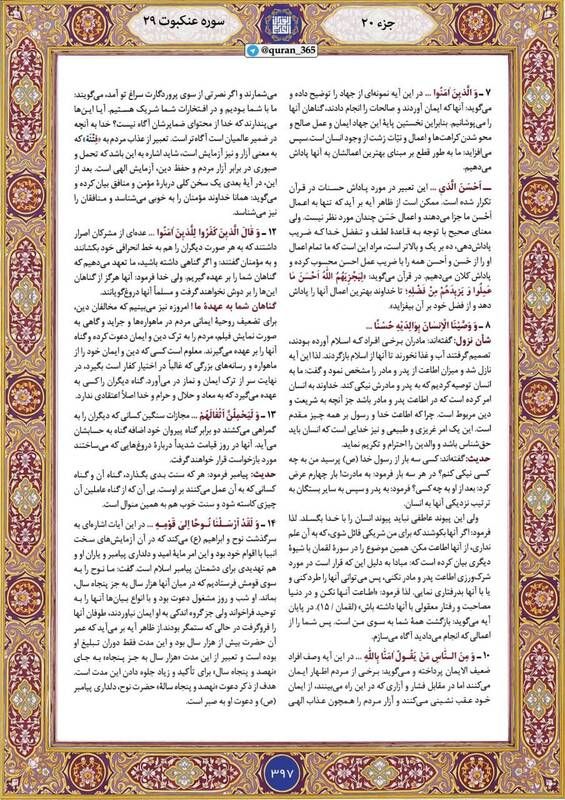 جزء ۲۰
سوره عنکبوت ۲۹
@quran_365
۷ ـ وَ الَّذِینَ آمَنُوا ... در این آیه نمونه‌ای از جهاد را توضیح داده و
می‌گوید: آنها که ایمان آوردند و صالحات را انجام دادند، گناهان آنها
را می‌پوشانیم. بنابراین نخستین پایهٔ این جهاد ایمان و عمل صالح و
محو شدن کراهت‌ها و اعمال و نیّات زشت از وجود انسان است. سپس
می‌افزاید: ما به طور قطع بر مبنای بهترین اعمالشان به آنها پاداش
می‌دهیم.
ــ أَحْسَنَ الَّذِي ... این تعبیر در مورد پاداش حسنات در قرآن
تکرار شده است. ممکن است از ظاهر آیه بر آید که تنها به اعمال
أحسن ما جزا می‌دهند و اعمال حَسَن چندان مورد نظر نیست. ولی
معنی صحیح با توجه به قاعدهٔ لطف و تفضل خدا که ضریب
پاداش‌دهی، ده بر یک و بالاتر است، مراد این است که ما تمام اعمال
او را از حَسن و أحسن همه را با ضریب عمل احسن محسوب کرده و
پاداش کلان می‌دهیم. در قرآن می‌گوید: «لِیَجْزِیَهُمُ اللَّهُ أَحْسَنَ مَا
عَمِلُوا وَ یَزِیدَهُمْ مِنْ فَضْلِهِ؛ تا خداوند بهترین اعمال آنها را پاداش
دهد و از فضل خود بر آن بیفزاید»
۸ ـ وَ وَصَّیْنَا الْإِنْسَانَ بِوَالِدَیْهِ حُسْنًا ...
شأن نزول: گفته‌اند: مادران برخی افراد که اسلام آورده بودند،
تصمیم گرفتند آب و غذا نخورند تا آنها از اسلام بازگردند. لذا این آیه
نازل شد و میزان اطاعت از پدر و مادر را مشخص نمود و گفت: ما به
انسان توصیه کردیم که به پدر و مادرش نیکی کند. خداوند به انسان
امر کرده است که در اطاعت پدر و مادر باشد جز آنچه به شریعت و
دین مربوط است. چرا که اطاعت خدا و رسول بر همه چیز مقدم
است. این یک امر غریزی و طبیعی و نیز خدایی است که انسان باید
حق‌شناس باشد و والدین را احترام و تکریم نماید.
حدیث: گفته‌اند: کسی سه بار از رسول خدا (ص) پرسید من به چه
کسی نیکی کنم؟ در هر سه بار فرمود: به مادرت! بار چهارم عرض
کرد: بعد از او به چه کسی؟ فرمود: به پدر و سپس به سایر بستگان به
ترتیب نزدیکی آنها به انسان.
ولی این پیوند عاطفی نباید پیوند انسان را با خدا بگسلد. لذا
فرمود: اگر آنها بکوشند که برای من شریکی قائل شوی، که به آن علم
نداری، از آنها اطاعت مکن. همین موضوع را در سورهٔ لقمان با شیوهٔ
دیگری بیان کرده است که: مبادا به دلیل این که قرار است در مورد
شرک‌ورزی اطاعت پدر و مادر نکنی، پس می‌توانی آنها را طرد کنی و
یا با آنها بدرفتاری نمایی. لذا فرمود: «اطاعت آنها نکن و در دنیا
مصاحبت و رفتار معقولی با آنها داشته باش» (لقمان / ۱۵). در پایان
آیه می‌گوید: بازگشت همهٔ شما به سوی من است. پس شما را از
اعمالی که انجام می‌دادید آگاه می‌سازم.
۱۰ ـ وَ مِنَ النَّاسِ مَنْ یَقُولُ آمَنَّا بِاللَّهِ ... در این آیه وصف افراد
ضعیف الایمان پرداخته و می‌گوید: برخی از مردم اظهار ایمان
می‌کنند اما در مقابل فشار و آزاری که در این راه می‌بینند، از ایمان
خود عقب نشینی می‌کنند و آزار مردم را همچون عذاب الهی
می‌شمارند و اگر نصرتی از سوی پروردگارت سراغ تو آمد، می‌گویند:
ما با شما بودیم و در افتخارات شما شریک هستیم. آیا این‌ها
می‌پندارند که خدا از محتوای ضمایرشان آگاه نیست؟ خدا به آنچه
در ضمیر عالمیان است آگاه‌تر است. تعبیر از عذاب مردم به «فِتْنَةَ» که
به معنای آزار و نیز آزمایش است، شاید اشاره به این باشد که تحمل و
صبوری در برابر آزار مردم و حفظ دین، آزمایش الهی است. بعد از
این، در آیهٔ بعدی یک سخن کلی دربارهٔ مؤمن و منافق بیان کرده و
می‌گوید: همانا خداوند مؤمنان را به خوبی می‌شناسد و منافقان را
نیز می‌شناسد.
۱۲ ـ وَ قَالَ الَّذِینَ کَفَرُوا لِلَّذِینَ آمَنُوا ... عده‌ای از مشرکان اصرار
داشتند که به هر صورت دیگران را هم به خط انحرافی خود بکشانند
و به مؤمنان گفتند: و اگر گناهی داشته باشید، ما تعهد می‌دهیم که
گناهان شما را بر عهده گیریم. ولی خدا فرمود: آنها هرگز از گناهان
این‌ها را بر دوش نخواهند گرفت و مسلماً آنها دروغ‌گویانند.
گناهان شما به عهدهٔ ما! امروزه نیز می‌بینیم که مخالفان دین،
برای تضعیف روحیهٔ ایمانی مردم در ماهواره‌ها و جراید و گاهی به
صورت نمایش فیلم، مردم را به ترک دین و ایمان دعوت کرده و گناه
آنها را بر عهده می‌گیرند. معلوم است کسی که دین و ایمان خود را از
ماهواره و رسانه‌های بزرگی که غالباً در اختیار کفار است بگیرد، در
نهایت سر از ترک ایمان و نماز در می‌آورد. گناه دیگران را کسی به
عهده می‌گیرد که به معاد و حلال و حرام و خدا اصلاً اعتقادی ندارد.
۱۳ ـ وَ لَیَحْمِلُنَّ أَثْقَالَهُمْ ... مجازات سنگین کسانی که دیگران را به
گمراهی می‌کشند دو برابر گناه پیروان خود اضافه گناه به حسابشان
می‌آید. آنها در روز قیامت شدیداً دربارهٔ دروغ‌هایی که می‌ساختند
مورد بازخواست قرار خواهند گرفت.
حدیث: پیامبر فرمود: هر که سنت بدی بگذارد، گناه آن و گناه
کسانی که به آن عمل می‌کنند بر اوست. بی آن که از گناه عاملین آن
چیزی کاسته شود و سنت خوب هم به همین منوال است.
۱۴ ـ وَ لَقَدْ أَرْسَلْنَا نُوحًا إِلَىٰ قَوْمِهِ ... در این آیات اشاره‌ای به
سرگذشت نوح و ابراهیم (ع) می‌کند که در آن آزمایش‌های سخت
انبیا با اقوام خود بود و این امر مایهٔ امید و دلداری پیامبر و یاران او و
هم تهدیدی برای دشمنان پیامبر اسلام است گفت: ما نوح را به
سوی قومش فرستادیم که در میان آنها هزار سال به جز پنجاه سال،
بماند. او شب و روز مشغول دعوت بود و با انواع بیان‌ها آنها را به
توحید فراخواند ولی جز گروه اندکی به او ایمان نیاوردند، طوفان آنها
را فروگرفت در حالی که ستمگر بودند.از ظاهر آیه بر می‌آید که عمر
آن حضرت بیش از هزار سال بود و این مدت فقط دوران تبلیغ او
بوده است و تعبیر از این مدت «هزار سال به جز پنجاه» به جای
«نهصد و پنجاه سال»، برای تأکید و زیاد جلوه دادن این مدت است.
هدف از ذکر دعوت «نهصد و پنجاه سالهٔ» حضرت نوح، دلداری پیامبر
(ص) و دعوت او به صبر است.
۳۹۷